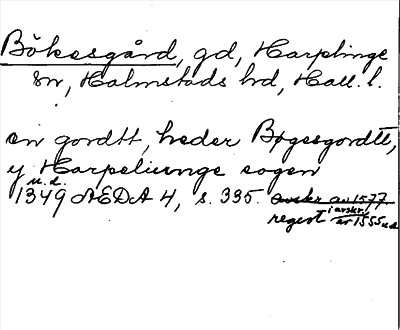 Bökesgård, gd, Harplinge
sn, Halmstads hd, Hall. l.
en gordtt, heder Bøgesgordtt,
y Harpeliunge sogen
u.d.
1349 AEDA 4, s. 335. avskr av 1577
regest i avskr. av 1555 u.d.